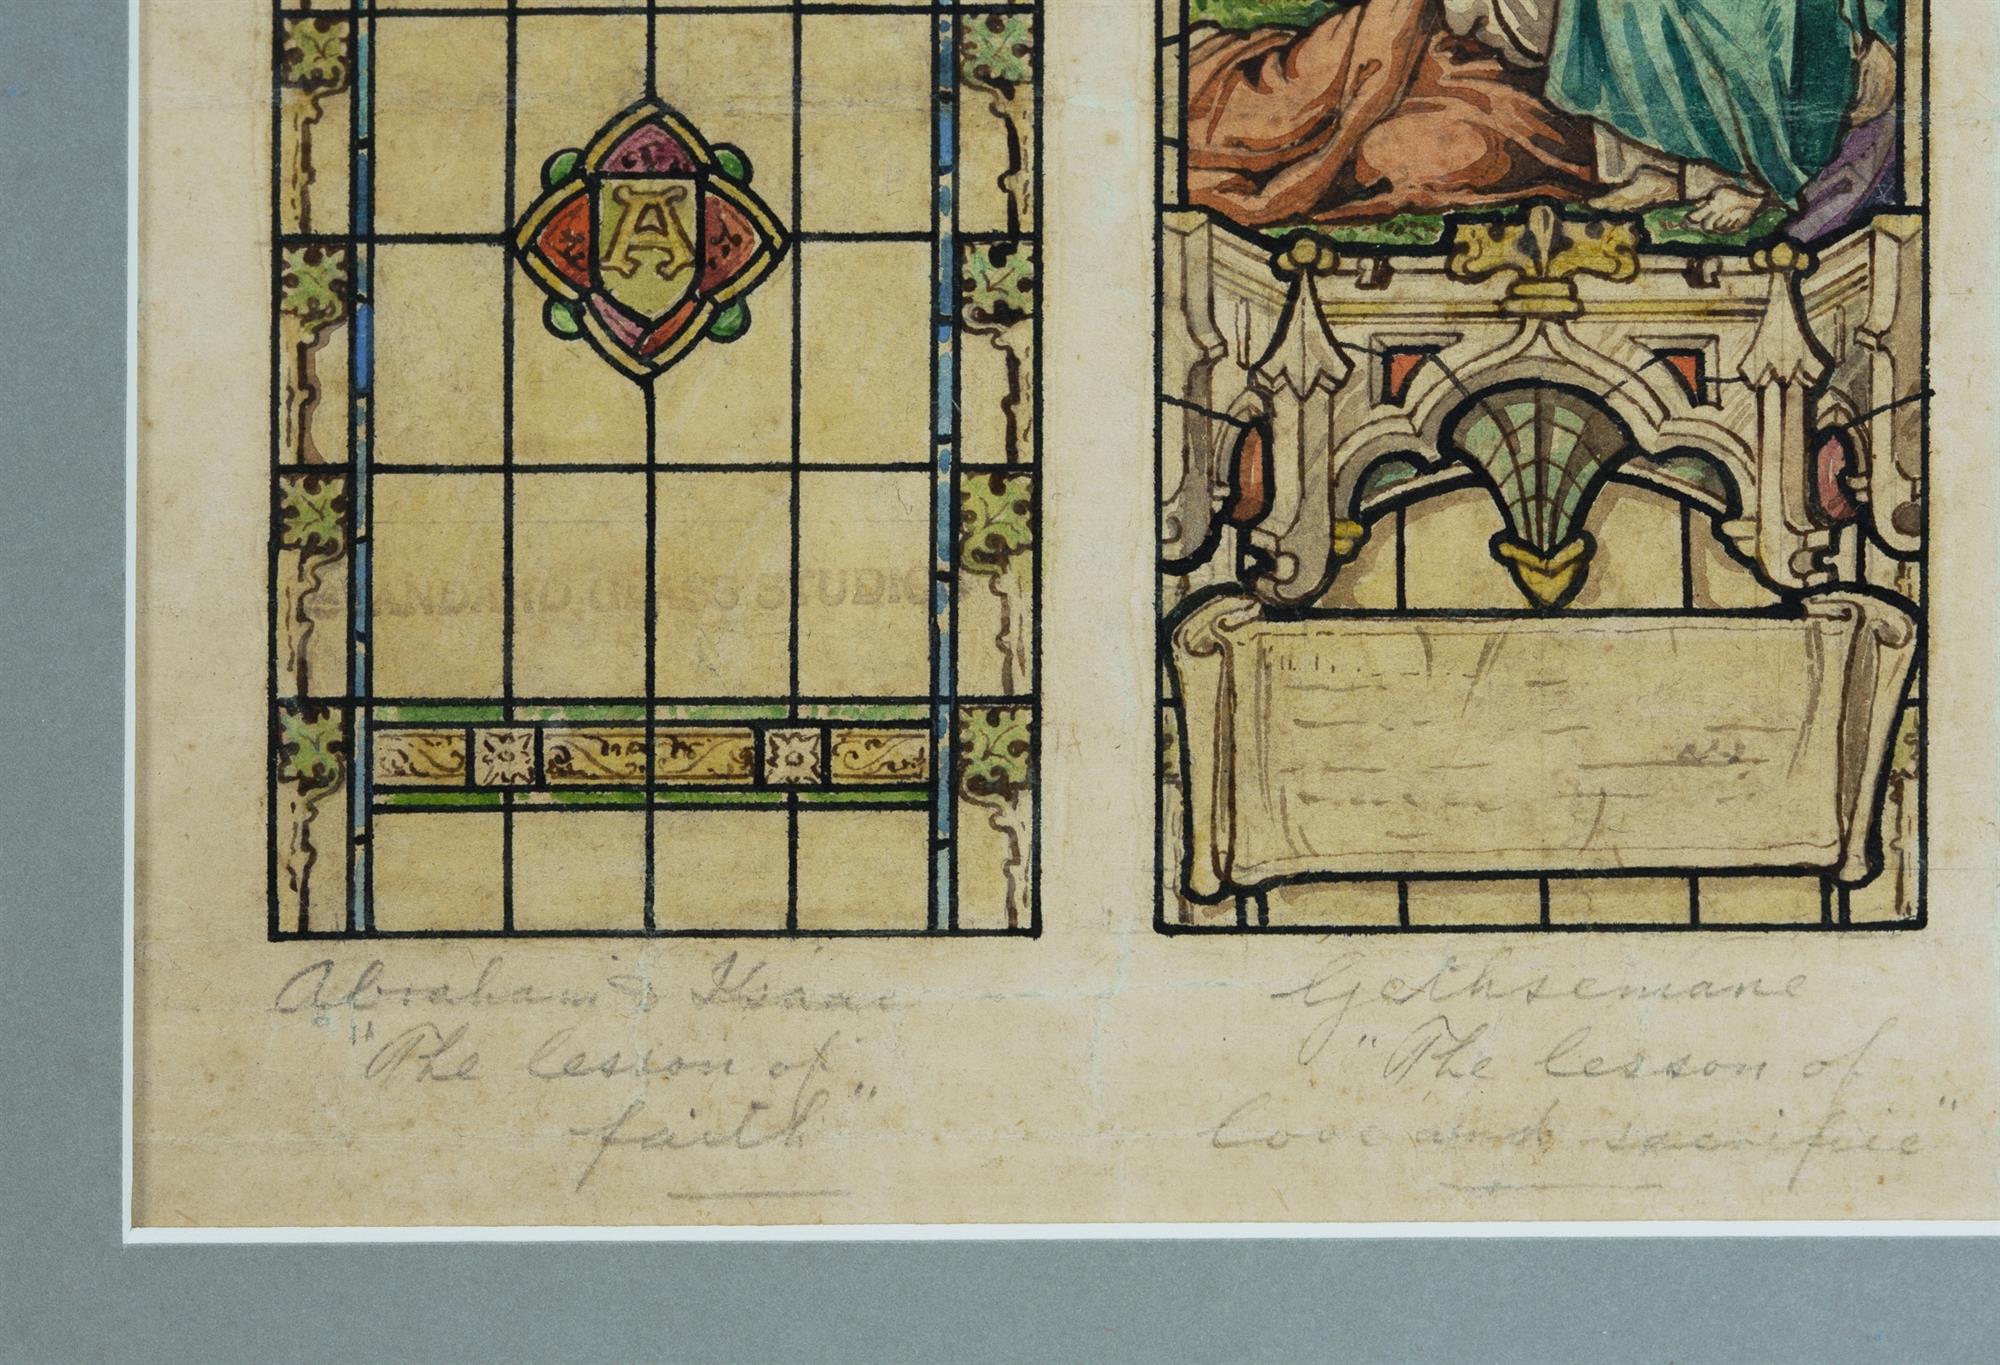 A
STANDARD GLASS STUDIOS
Abraham & Isaac
"The lesson of
faith"
Gethsemane
"The lesson of
love and sacrifice"